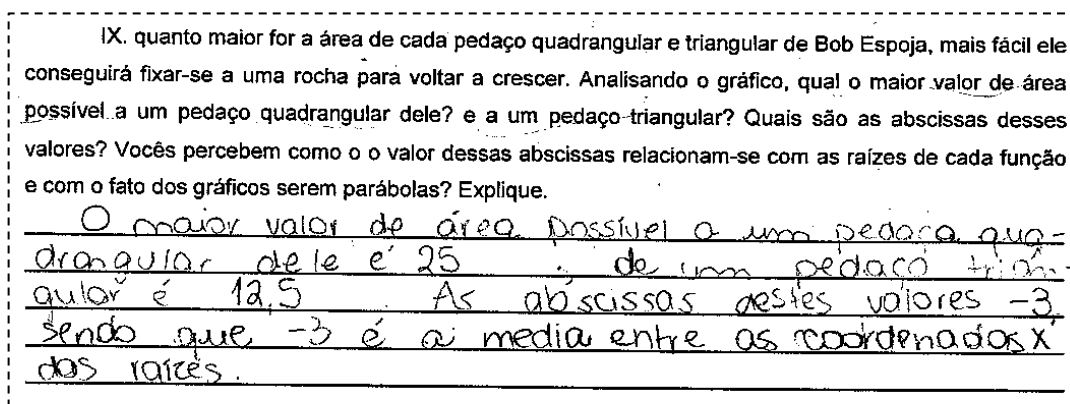 IX. quanto maior for a área de cada pedaço quadrangular e triangular de Bob Espoja, mais fácil ele
conseguirá fixar-se a uma rocha para voltar a crescer. Analisando o gráfico, qual o maior valor de área
possível a um pedaço quadrangular dele? e a um pedaço triangular? Quais são as abscissas desses
valores? Vocês percebem como o o valor dessas abscissas relacionam-se com as raízes de cada função
e com o fato dos gráficos serem parábolas? Explique.
O maior valor de área possível a um pedaça qua-
drangular dele é 25 . de um pedaço trian-
gular é 12,5 . As abscissas destes valores -3,
sendo que -3 é a media entre as coordenadas x
das raízes.